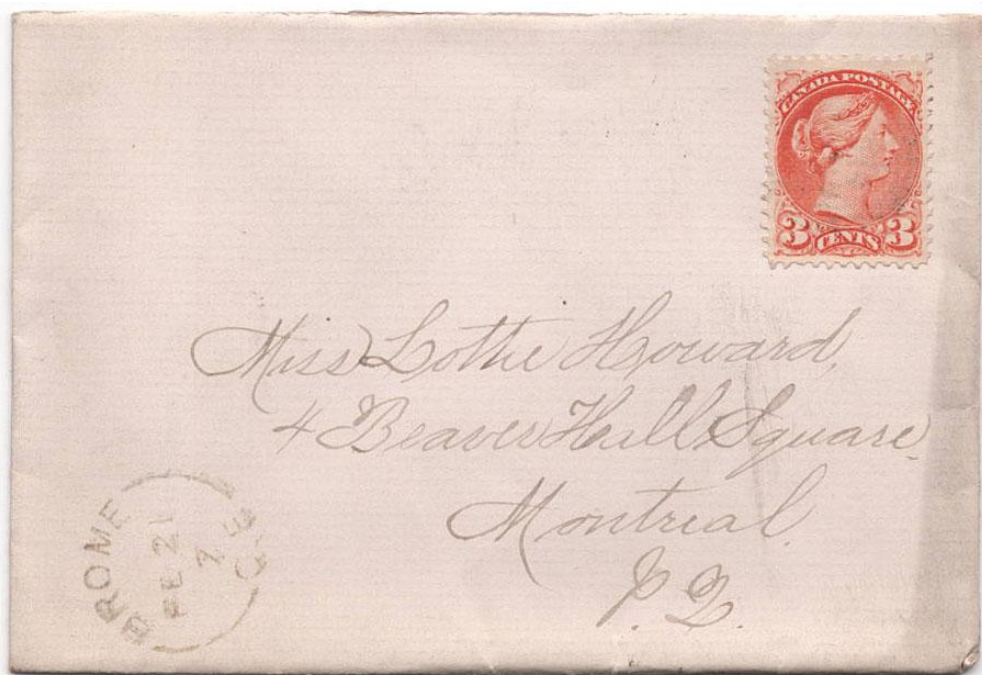 CANADA POSTAGE
3 CENTS 3
Miss Lottie Howard,
4 Beaver Hall Square
Montreal.
P. Q.
BROME
FE 21
QUE